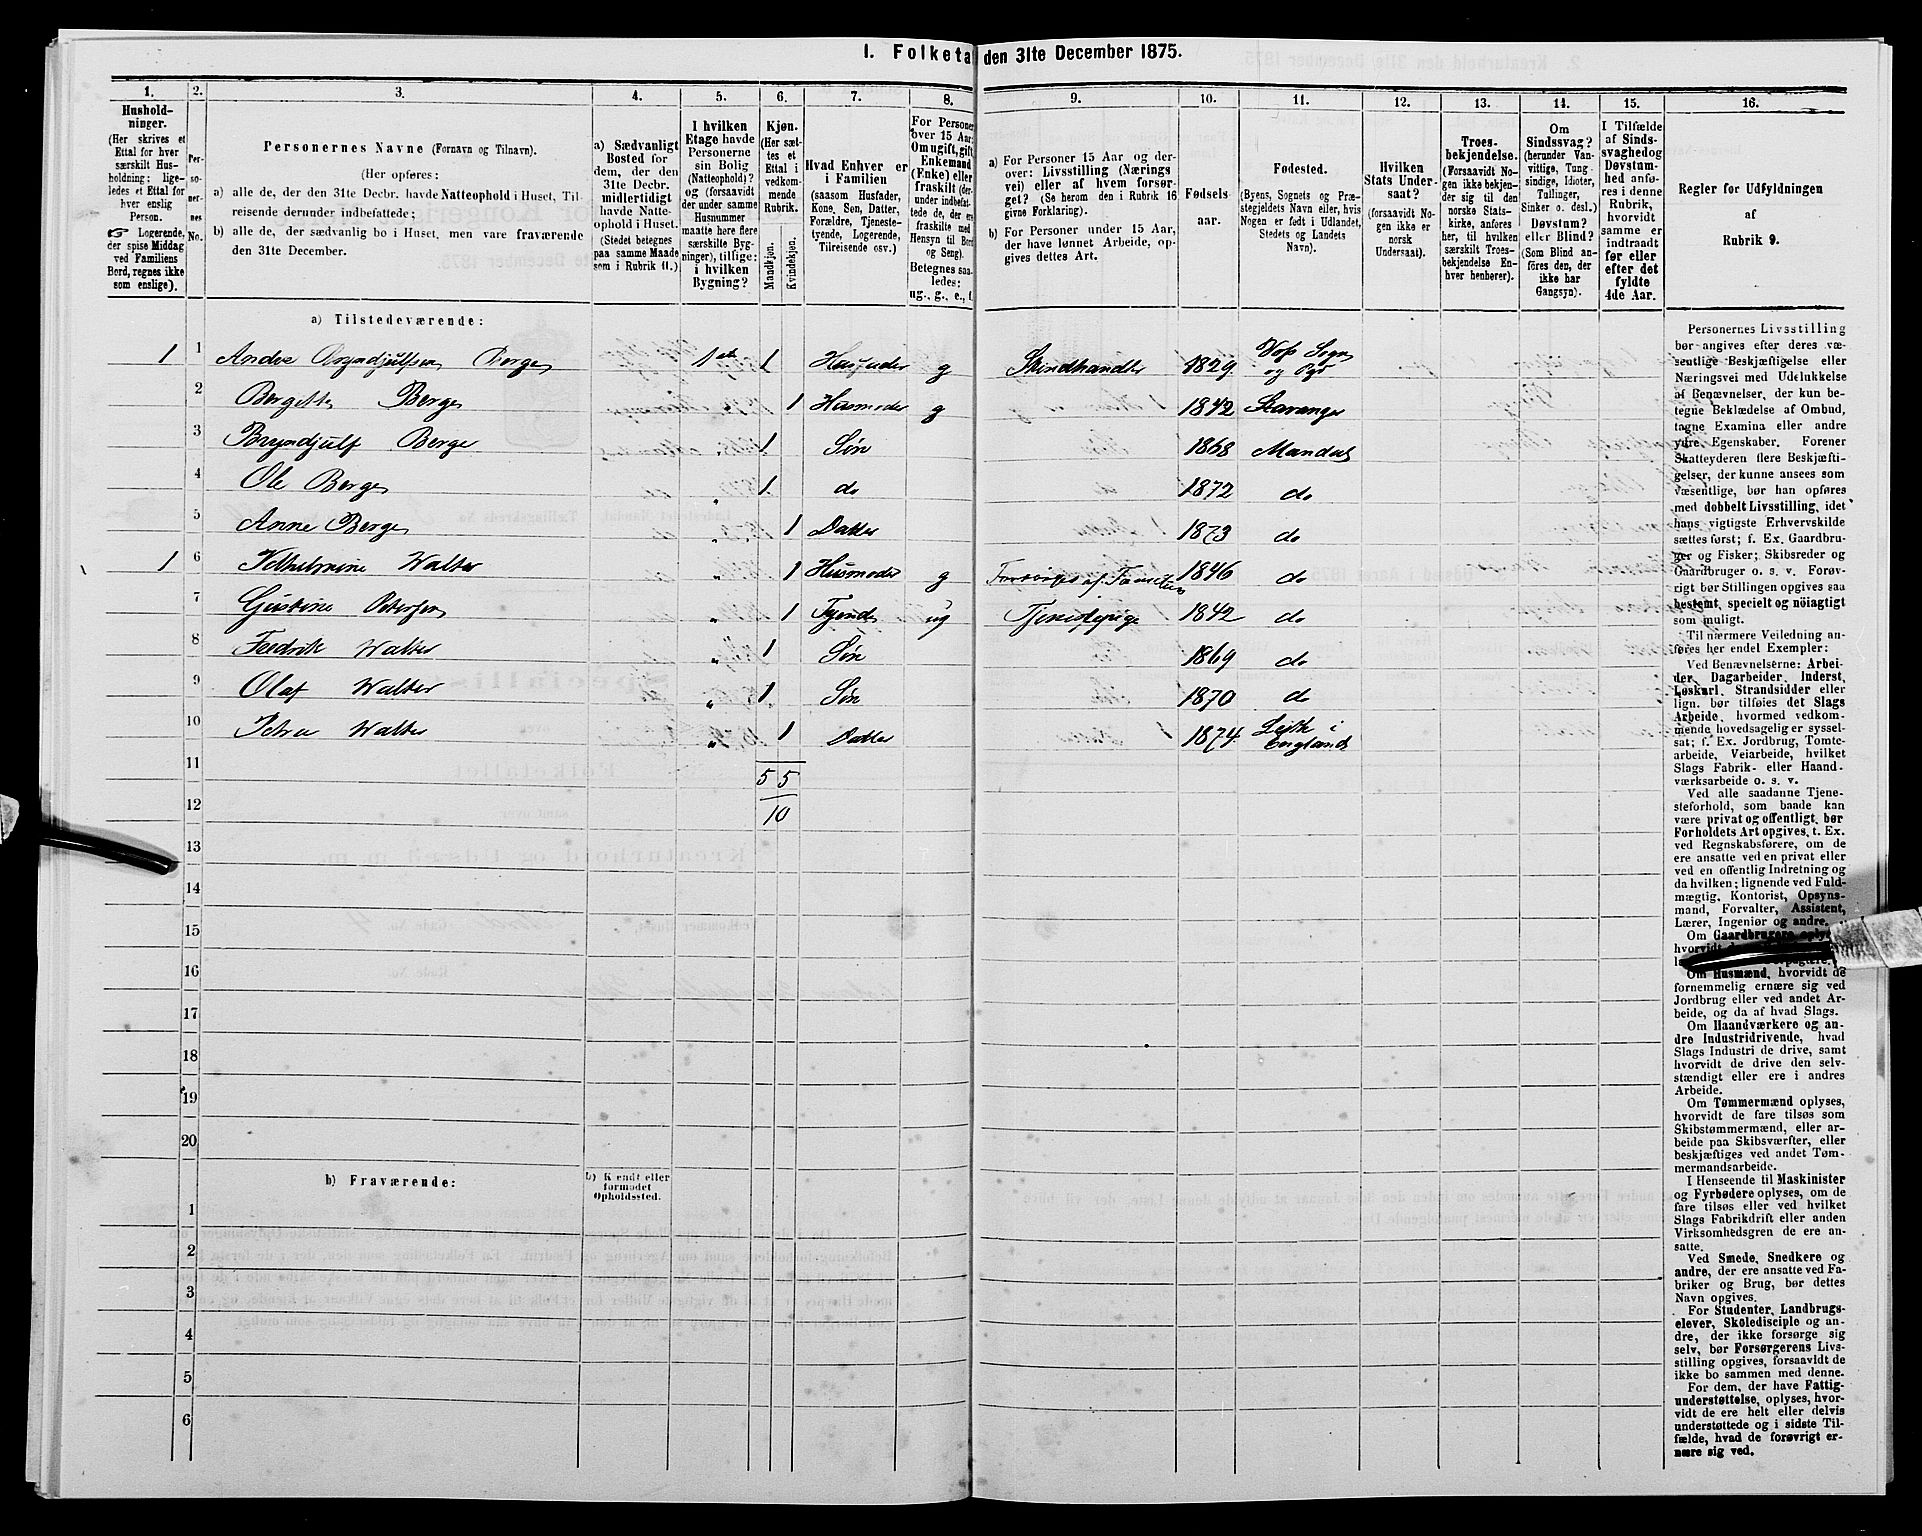 I. Folketa den 31te December 1875.
1. 2. 3. 4. 5. 6. 7. 8. 9. 10. 11. 12. 13. 14. 15. 16.
Hushold-
ninger.
(Her skrives et
Ettal for hver
særskilt Hus-
holdning; lige-
ledes et Ettal for
hver enslig
Person.
☞ Logerende,
der spise Middag
ved Familiens
Bord, regnes ikke
som enslige).
Per-
so-
ner-
nes
No.
Personernes Navne (Fornavn og Tilnavn).
(Her opføres:
a) alle de, der den 31te Decbr. havde Natteophold i Huset, Til-
reisende derunder indbefattede;
b) alle de, der sædvanlig bo i Huset, men vare fraværende
den 31te December.
a) Sædvanligt
Bosted for
dem, der den
31te Decbr.
midlertidigt
havde Natte-
ophold i Huset.
(Stedet betegnes
paa samme Maade
som i Rubrik 11.)
I hvilken
Etage havde
Personerne
sin Bolig
(Natteophold)?
og (forsaavidt
der under samme
Husnummer
maatte høre flere
særskilte Byg-
ninger), tillige:
i hvilken
Bygning?
Kjøn.
(Her sæt-
tes et
Ettal i
vedkom-
mende
Rubrik.
Mandkjøn.
Kvindekjøn.
Hvad Enhver er
i Familien
(saasom Husfader,
Kone, Søn, Datter,
Forældre, Tjeneste-
tyende, Logerende,
Tilreisende osv.)
For Persone
over 15 Aar:
Om ugift, gift,
Enkemand
(Enke) eller
fraskilt (der-
under indbefat-
tede de, der ere
fraskilte med
Hensyn til Bord
og Seng).
Betegnes saa-
ledes:
ug., g., e., f.
a) For Personer 15 Aar og der-
over: Livsstilling (Nærings
vei) eller af hvem forsør-
get? (Se herom den i Rubrik 16
givne Forklaring).
b) For Personer under 15 Aar,
der have lønnet Arbeide, op-
gives dettes Art.
Fødsels-
aar.
Fødested.
(Byens, Sognets og Præ-
stegjeldets Navn eller, hvis
Nogen er født i Udlandet,
Stedets og Landets
Navn).
Hvilken
Stats Under-
saat?
(forsaavidt No-
gen ikke er
norsk
Undersaat).
Troes-
bekjendelse.
(Forsaavidt No-
gen ikke bekjen-
der sig til den
norske Stats-
kirke, anføres
her, til hvilken
særskilt Troes-
bekjendelse En-
hver henhører).
Om
Sindssvag?
(herunder Van-
vittige, Tung-
sindige, Idioter,
Tullinger,
Sinker o. desl.)
Døvstum?
eller Blind?
(Som Blind an-
føres den, der
ikke har
Gangsyn).
I Tilfælde
af Sinds-
svaghed og
Døvstum-
hed anfø-
res i denne
Rubrik,
hvorvidt
samme er
indtraadt
før eller
efter det
fyldte
4de Aar.
Regler for Udfyldningen
af
Rubrik 9.
a) Tilstedeværende:
1 1 Andres Bryndjulfsen Berge 1 ste 1 Husfader g Skindhandler 1829 Voss Sogn
2 Bergitte Berge " 1 Husmoder g 1842 Stavanger
3 Bryndjulf Berge " 1 Søn 1868 Mandal
4 Ole Berge " 1 do 1872 do
5 Anne Berge " 1 Datter 1873 do
1 6 Vilhelmine Walter " 1 Husmoder g Forsørges af Familien 1846 do
7 Gustine Petersen " 1 Tyende ug Tjenistepige 1842 do
8 Fredrik Walter " 1 Søn 1869 do
9 Olaf Walter " 1 Søn 1870 do
10 Petra Walter " 1 Datter 1874 Leith i
England
11 5 5
12 10
13
14
15
16
17
18
19
20
b) Fraværende:
b) Kjendt eller
formodet
Opholdssted.
1
2
3
4
5
6
Personernes Livsstilling
bør angives efter deres væ-
sentlige Beskjæftigelse eller
Næringsvei med Udelukkelse
af Benævnelser, der kun be-
tegne Beklædelse af Ombud,
tagne Examina eller andre
ydre Egenskaber. Forener
Skatteyderen flere Beskjæfti-
gelser, der kunne ansees som
væsentlige, bør han opføres
med dobbelt Livsstilling, idet
hans vigtigste Erhvervskilde
sættes først; f. Ex. Gaardbru-
ger og Fisker; Skibsreder og
Gaardbruger o. s. v. Forøv-
rigt bør Stillingen opgives saa
bestemt, specielt og nöiagtigt
som muligt.
Til nærmere Veiledning an-
føres her endel Exempler:
Ved Benævnelserne: Arbei-
der, Dagarbeider, Inderst,
Løskarl, Strandsidder eller
lign. bør tilføies det Slags
Arbeide, hvormed vedkom-
mende hovedsagelig er syssel-
sat; f. Ex. Jordbrug, Tomte-
arbeide, Veiarbeide, hvilket
Slags Fabrik- eller Haand-
værksarbeide o. s. v.
Ved alle saadanne Tjene-
steforhold, som baade kan
være privat og offentligt, bør
Forholdets Art opgives, t. Ex.
ved Regnskabsførere, om de
ere ansatte ved en privat eller
ved en offentlig Indretning og
da hvilken; lignende ved Fuld-
mægtig, Kontorist, Opsyns-
mand, Forvalter, Assistent,
Lærer, Ingeniør og andre.
Om Gaardbrugere oplys-
hvorvidt
Om Husmænd, hvorvidt de
fornemmelig ernære sig ved
Jordbrug eller ved andet Ar-
beide, og da af hvad Slags.
Om Haandværkere og an-
dre Industridrivende, hvad
Slags Industri de drive, samt
hvorvidt de drive den selv-
stændigt eller ere i andres
Arbeide.
Om Tømmermænd oplyses,
hvorvidt de fare tilsøs som
Skibstømmermænd, eller ar-
beide paa Skibsværfter, eller
beskjæftiges ved andet Tøm-
mermandsarbeide.
I Henseende til Maskinister
og Fyrbødere oplyses, om de
fare tilsøs eller ved hvilket
Slags Fabrikdrift eller anden
Virksomhedsgren de ere an-
satte.
Ved Smede, Snedkere og
andre, der ere ansatte ved Fa-
briker og Brug, bør dettes
Navn opgives.
For Studenter, Landbrugs-
elever, Skoledisciple og an-
dre, der ikke forsørge sig
selv, bør Forsørgerens Livs-
stilling opgives, forsaavidt de
ikke bo sammen med denne.
For dem, der have Fattig-
understøttelse, oplyses, hvor-
vidt de ere helt eller delvis
understøttede og i sidste Til-
fælde, hvad de forøvrigt er-
nære sig ved.